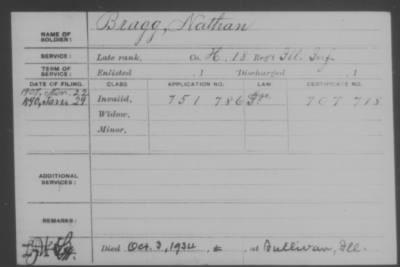 NAME OF SOLDIER: Bragg, Nathan
SERVICE: Late rank, Co. H, 18 Reg't Ill. Inf.
TERM OF SERVICE: Enlisted , 1 Discharged , 1
DATE OF FILING. CLASS APPLICATION NO. LAW CERTIFICATE NO.
22
1890, 29 Invalid, 751 786 707 718
Widow,
Minor,
ADDITIONAL SERVICES:
REMARKS:
Died Oct. 3, 1934, at Sullivan, Ill.